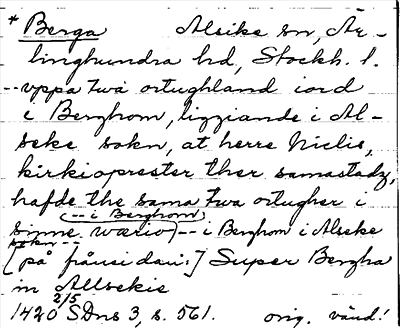 * Berga Alsike sn, Är-
linghundra hd, Stockh. l.
-- vppa twa ortughland iord
i Berghom, liggiande i Al-
seke sokn, at herre Niclis,
kirkioprester ther samastadz,
hafde the sama twa ortugher i
(-- i Berghom)
sinne wærio -- i Berghom i Alseke
sokn --
[på frånsidan:] Super Bergha
in Allsekie
1420 2/5 SDns 3, s. 561. orig. vänd!